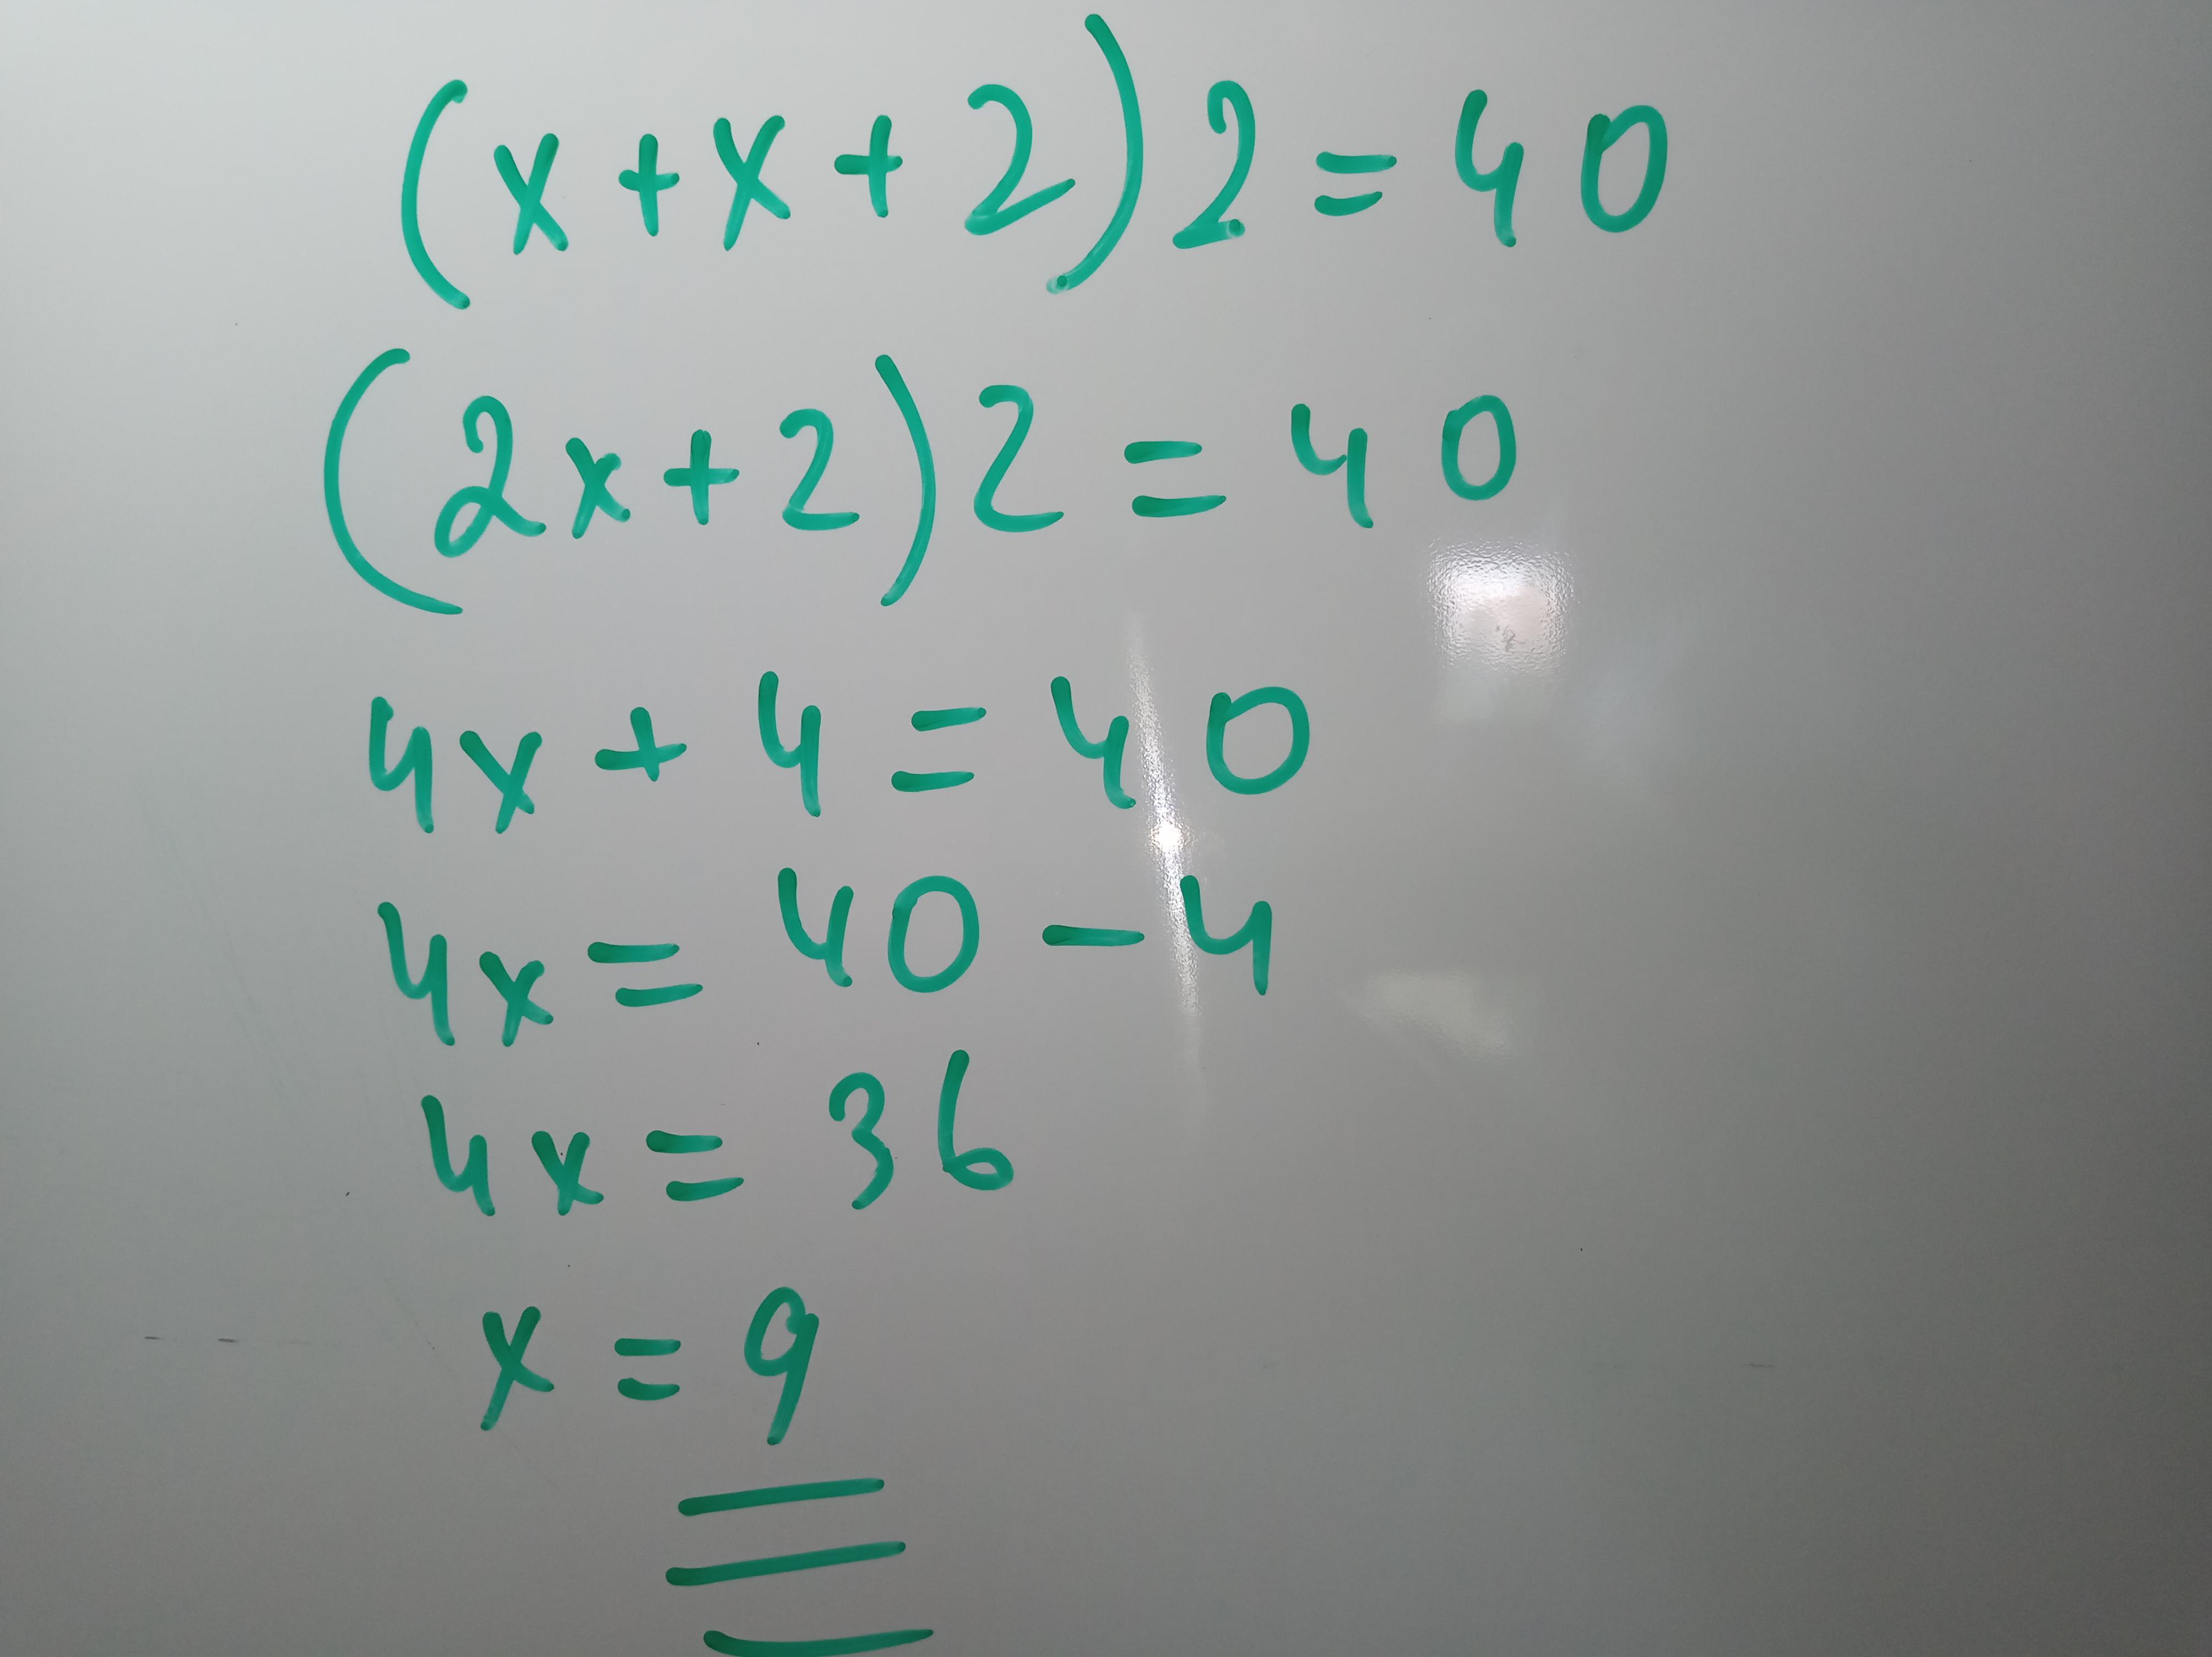 (x+x+2)2=40
(2x+2)2=40
4x+4=40
4x=40-4
4x=36
x=9